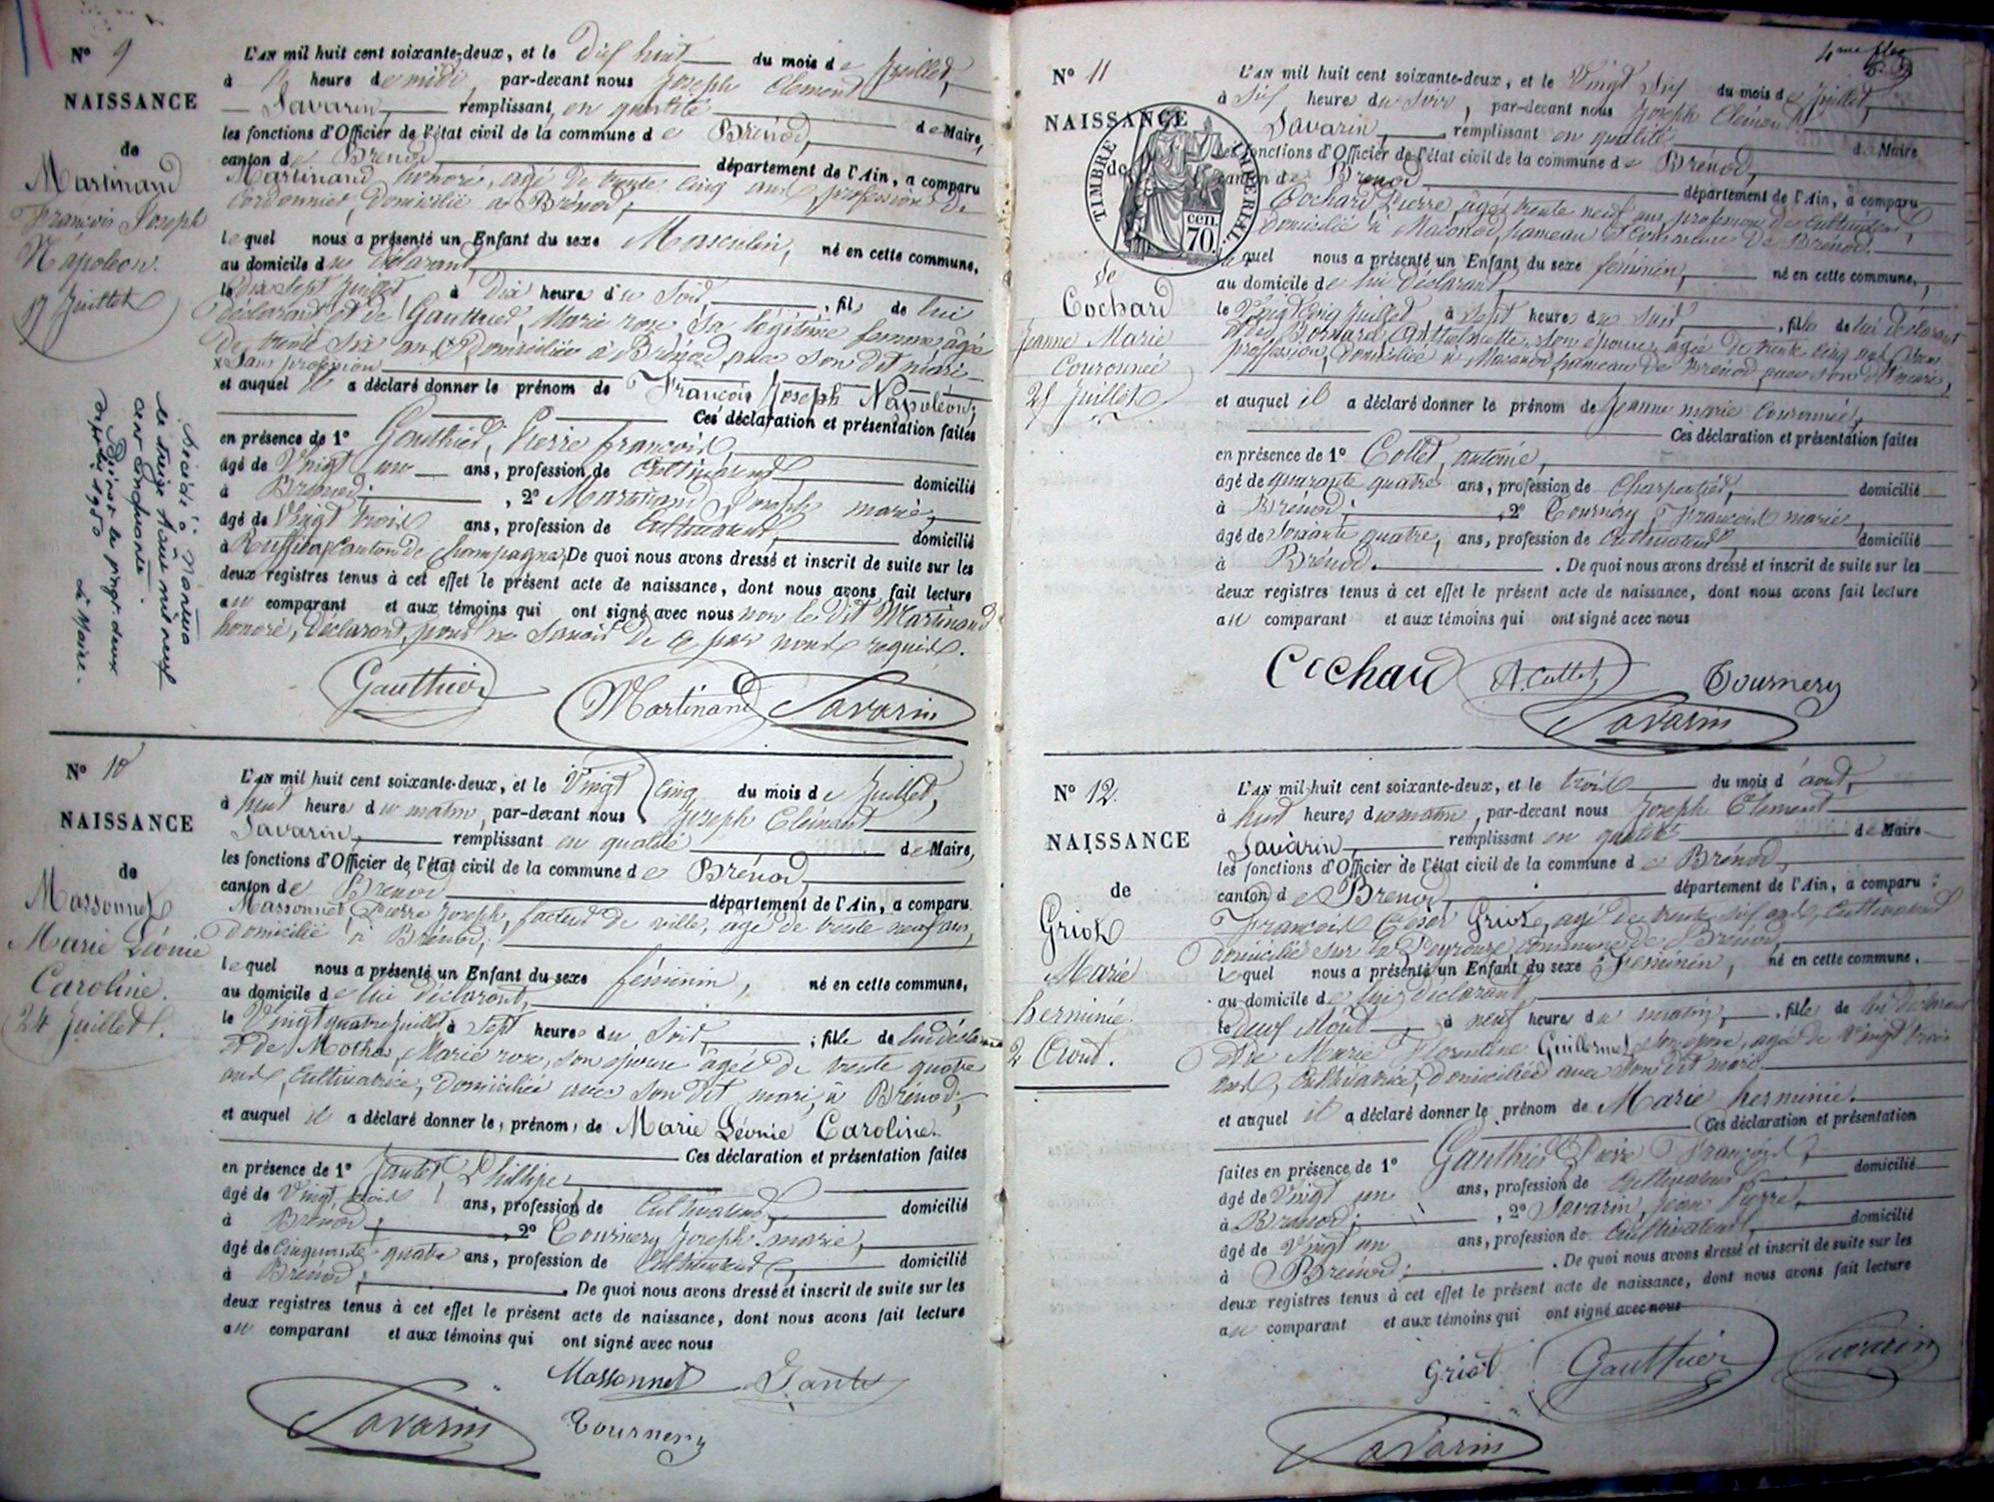 N° 9
NAISSANCE
de
Martinand
François Joseph
Napoléon.
17 Juillet
Décédé à Nantua
le treize Août mil neuf
cent cinquante
Brénod le vingt deux
1950
Le Maire.
L'AN mil huit cent soixante-deux, et le dix huit du mois de Juillet,
à heure de midi, par-devant nous Joseph Clément
Savarin, remplissant en qualité de Maire,
les fonctions d'Officier de l'état civil de la commune de Brénod,
canton de Brénod département de l'Ain, a comparu
Martinand honoré, agé de trente cinq ans, profession de
Cordonnier, domicilié à Brénod,
lequel nous a présenté un Enfant du sexe Masculin, né en cette commune,
au domicile du déclarant
le dix sept Juillet à dix heures du soir, fils de lui
déclarant et de Gauthier, Marie roze sa légitime femme agée
de trente six ans x Domiciliée à Brénod avec son dit mari
x Sans profession
et auquel il a déclaré donner le prénom de François Joseph Napoléon,
Ces déclaration et présentation faites
en présence de 1° Gauthier, Pierre françois,
âgé de Vingt un ans, profession de Cultivateur domicilié
à Brénod. , 2° Martinand Joseph marie,
âgé de Vingt trois ans, profession de Cultivateur, domicilié
à Ruffieu, canton de Champagne, De quoi nous avons dressé et inscrit de suite sur les
deux registres tenus à cet effet le présent acte de naissance, dont nous avons fait lecture
au comparant et aux témoins qui ont signé avec nous non le dit Martinand
honoré, déclarant, pour ne savoir de ce par nous requis.
Gauthier Martinand Savarin
N° 10
NAISSANCE
de
Massonnet
Marie Léonie
Caroline.
24 Juillet.
L'AN mil huit cent soixante-deux, et le Vingt Cinq du mois de Juillet,
à huit heures du matin, par-devant nous Joseph Clément
Savarin, remplissant en qualité de Maire,
les fonctions d'Officier de l'état civil de la commune de Brénod,
canton de Brénod département de l'Ain, a comparu
Massonnet Pierre Joseph, facteur de ville, agé de trente neuf ans,
domicilié à Brénod,
lequel nous a présenté un Enfant du sexe féminin, né en cette commune,
au domicile de lui déclarant,
le Vingt quatre Juillet à sept heures du soir, fille de lui déclarant
et de Mothe, Marie roze, son épouse agée de trente quatre
ans, Cultivatrice, domiciliée avec son dit mari, à Brénod,
et auquel il a déclaré donner le prénom de Marie Léonie Caroline.
Ces déclaration et présentation faites
en présence de 1° Jantet, Phillipe
âgé de Vingt trois ans, profession de Cultivateur, domicilié
à Brénod, 2° Tournery Joseph marie,
âgé de Cinquante quatre ans, profession de Cultivateur, domicilié
à Brénod, De quoi nous avons dressé et inscrit de suite sur les
deux registres tenus à cet effet le présent acte de naissance, dont nous avons fait lecture
au comparant et aux témoins qui ont signé avec nous
Massonnet Jantet
Savarin Tournery
4me
N° 11
NAISSANCE
de
TIMBRE IMPERIAL
70 cen.
de
Cochard
Jeanne Marie
Couronnée
25 Juillet
L'AN mil huit cent soixante-deux, et le Vingt Six du mois de Juillet,
à Six heures du Soir, par-devant nous Joseph Clément
Savarin, remplissant en qualité de Maire
les fonctions d'Officier de l'état civil de la commune de Brénod,
canton de Brénod département de l'Ain, a comparu
Cochard Pierre, agé trente neuf ans profession de Cultivateur,
domicilié à Maconod, hameau et commune de Brénod.
lequel nous a présenté un Enfant du sexe féminin, né en cette commune,
au domicile de lui déclarant,
le Vingt Cinq Juillet, à sept heures du soir, fille de lui déclarant
et de Bornard, Anthelmette, son épouse, agée de trente cinq ans, sans
profession, domiciliée à Maconod, hameau de Brénod avec son dit mari,
et auquel il a déclaré donner le prénom de Jeanne marie Couronnée,
Ces déclaration et présentation faites
en présence de 1° Collet, antoine,
âgé de quarante quatre ans, profession de Charpentier, domicilié
à Brénod. , 2° Tournery, François marie,
âgé de Soixante quatre, ans, profession de Cultivateur, domicilié
à Brénod. . De quoi nous avons dressé et inscrit de suite sur les
deux registres tenus à cet effet le présent acte de naissance, dont nous avons fait lecture
au comparant et aux témoins qui ont signé avec nous
Cochard A. Collet Tournery
Savarin
N° 12.
NAISSANCE
de
Griot
Marie
herminie.
2 Aout.
L'AN mil huit cent soixante-deux, et le trois du mois d'août,
à huit heures du matin, par-devant nous Joseph Clément
Savarin, remplissant en qualité de Maire
les fonctions d'Officier de l'état civil de la commune de Brénod,
canton de Brénod, département de l'Ain, a comparu :
François César Griot, agé de trente six ans, Cultivateur
domicilié sur la Peyrouse commune de Brénod,
lequel nous a présenté un Enfant du sexe Féminin, né en cette commune,
au domicile de lui déclarant,
le deux Aout, à neuf heures du matin, fille de lui déclarant
et de Marie Florentine Guillermet, son épouse, agée de Vingt trois
ans, Cultivatrice, domiciliée avec son dit mari
et auquel il a déclaré donner le prénom de Marie herminie.
Ces déclaration et présentation
faites en présence de 1° Gauthier Pierre François,
âgé de Vingt un ans, profession de Cultivateur domicilié
à Brénod, , 2° Savarin, Jean Pierre,
âgé de Vingt un ans, profession de Cultivateur, domicilié
à Brénod. . De quoi nous avons dressé et inscrit de suite sur les
deux registres tenus à cet effet le présent acte de naissance, dont nous avons fait lecture
au comparant et aux témoins qui ont signé avec nous
Griot Gauthier Savarin
Savarin